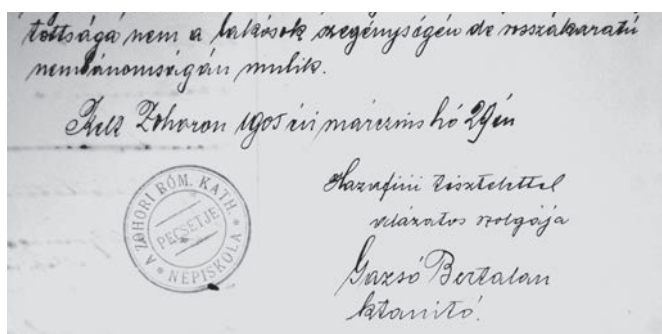 tottsága nem a lakósok szegénységén de rosszakaratú
nembánomságán mulik.
Kelt Zohoron 1905 évi márczius hó 29én
A ZOHORI RÓM. KATH. NÉPISKOLA
PECSÉTJE
Hazafiui tisztelettel
alázatos szolgája
Gazsó Bertalan
ktanító.